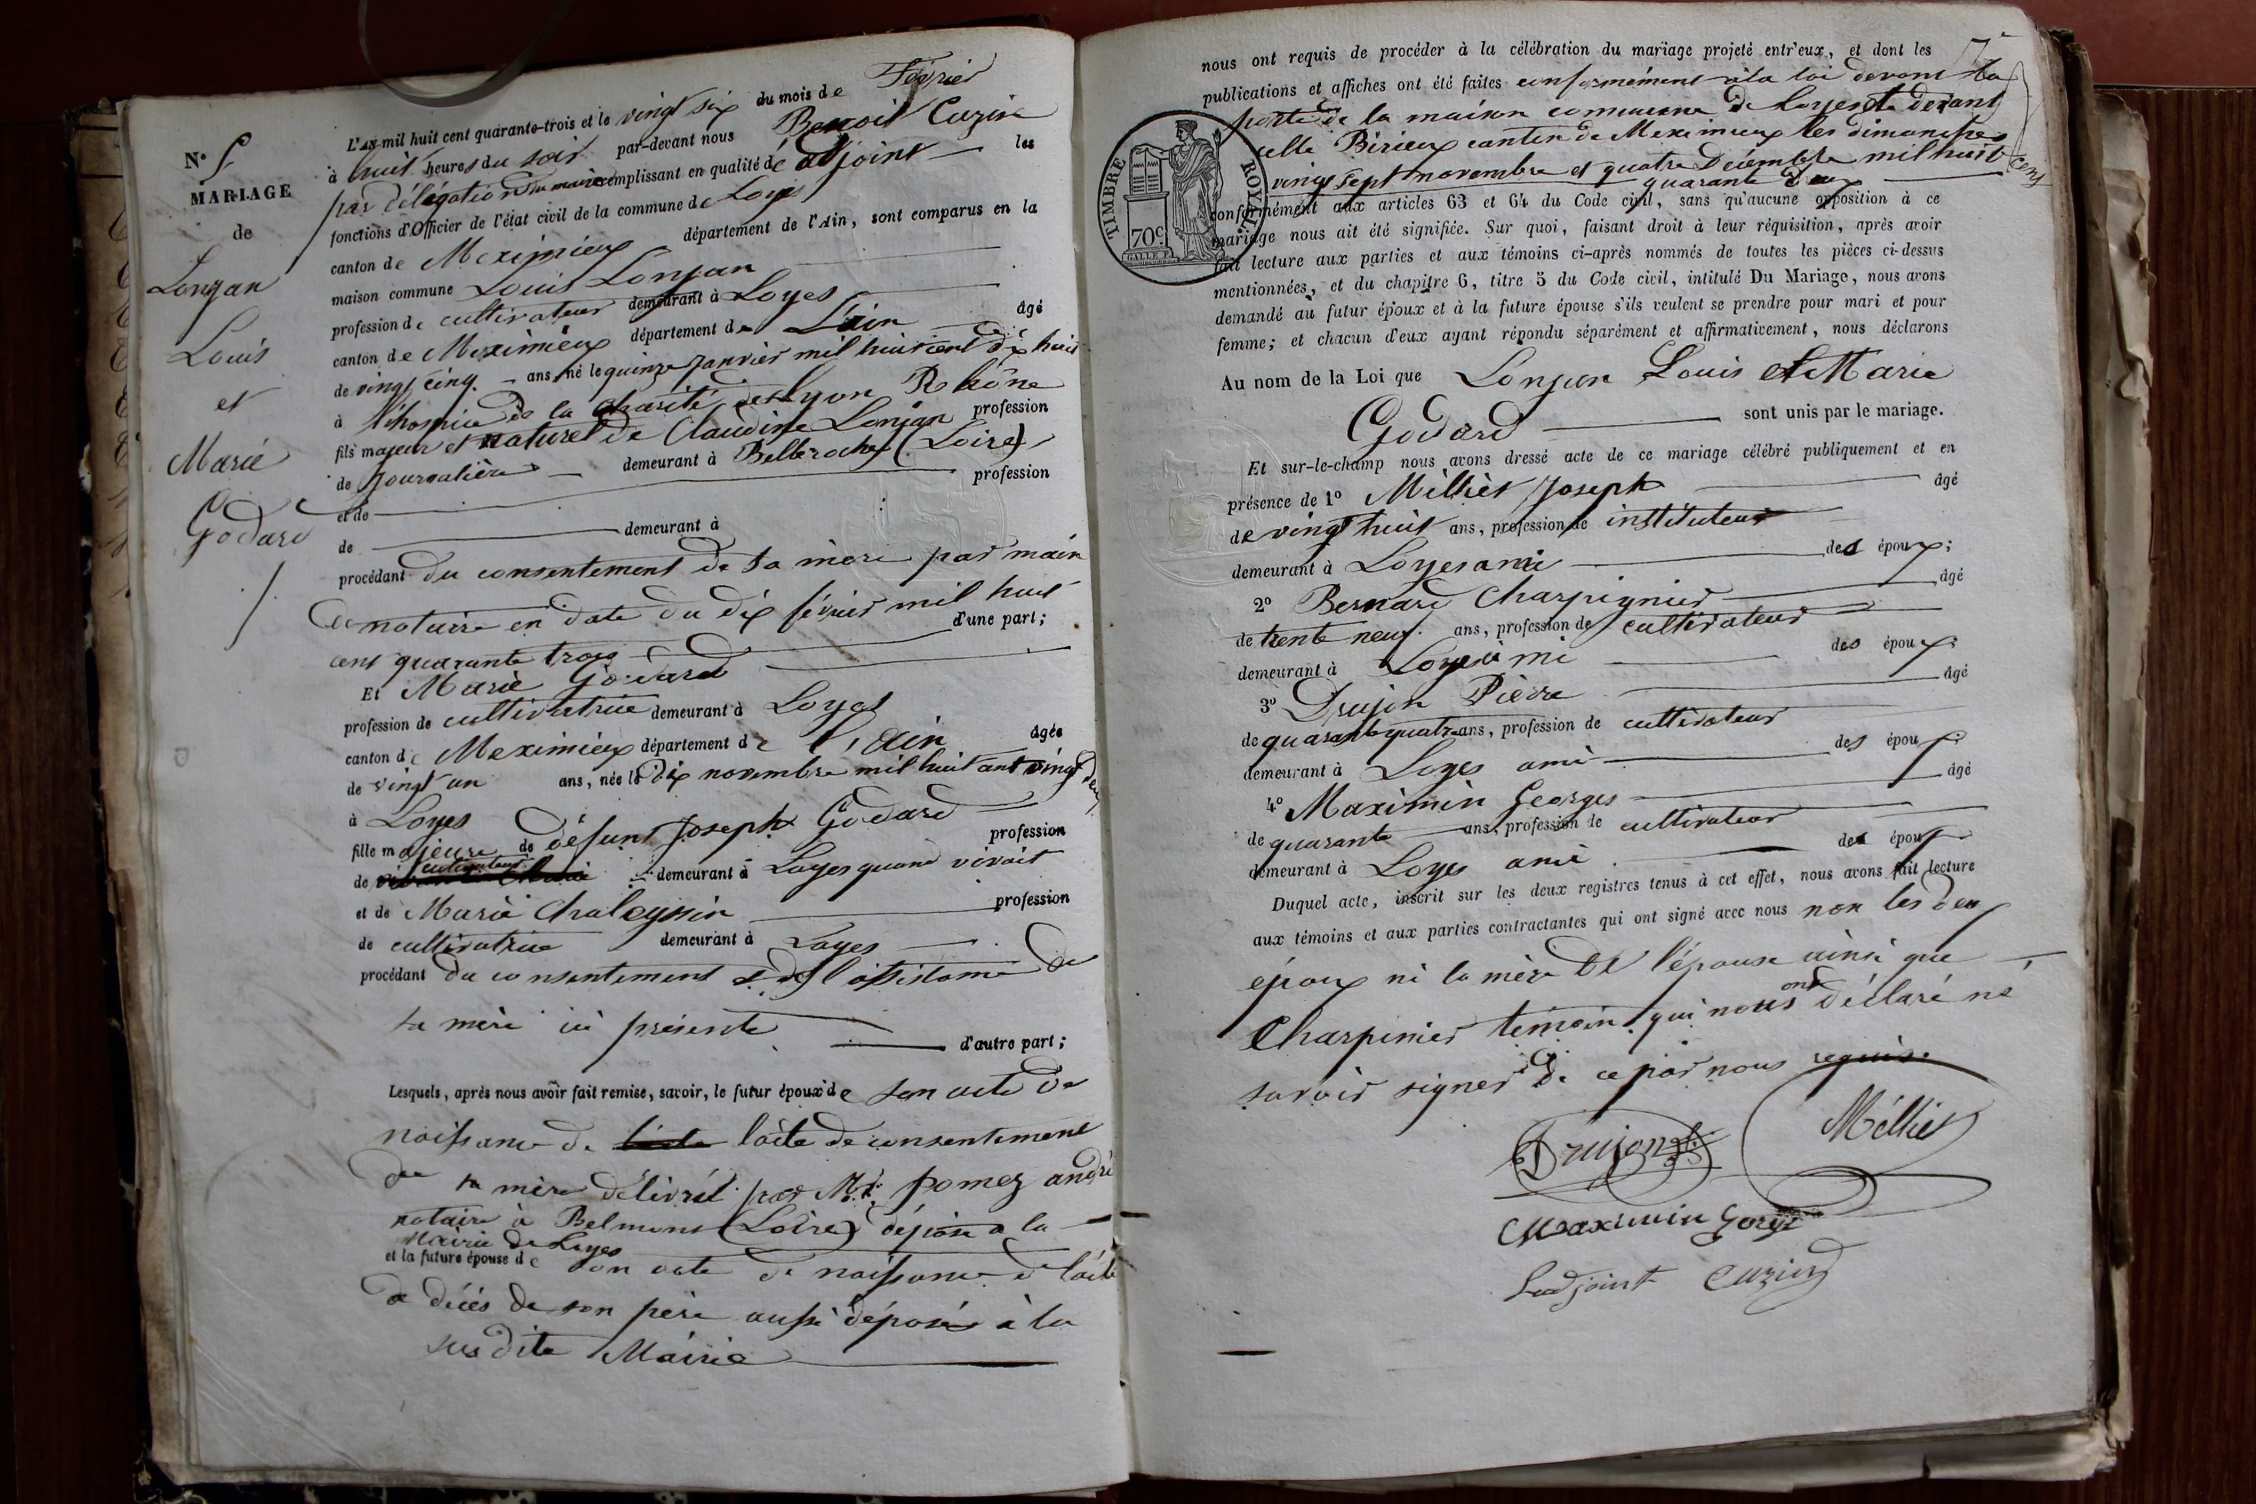 N° 5
MARIAGE
de
Lonjan
Louis
et
Marie
Godard
L'AN mil huit cent quarante-trois et le vingt six du mois de Février
à huit heures du soir par-devant nous Benoit Cuzin
par délégation du maire remplissant en qualité de adjoint les
fonctions d'Officier de l'état civil de la commune de Loyes
canton de Meximieux département de l'Ain, sont comparus en la
maison commune Louis Lonjan
profession de cultivateur demeurant à Loyes
canton de Meximieux département de L'ain âgé
de vingt cinq ans, né le quinze janvier mil huit cent dix huit
à l'hospice de la charité de Lyon Rhône
fils majeur et naturel de Claudine Lonjan profession
de journalière demeurant à Belleroche (Loire)
et de profession
de demeurant à
procédant du consentement de sa mère par main
de notaire en date du dix février mil huit
cent quarante trois d'une part;
Et Marie Godard
profession de cultivatrice demeurant à Loyes
canton de Meximieux département de l'ain âgée
de vingt un ans, née le dix novembre mil huit cent vingt deux
à Loyes
fille majeure de défunt Joseph Godard profession
de cultivateur demeurant à Loyes quand vivait
et de Marie Chaleyssin profession
de cultivatrice demeurant à Loyes
procédant du consentement et de l'assistance de
sa mère ici présente
d'autre part;
Lesquels, après nous avoir fait remise, savoir, le futur époux de son acte de
naissance de l'acte de consentement
de sa mère délivré par Mr. pomez andré
notaire à Belmont (Loire) déposé a la
Mairie de Loyes
et la future épouse de son acte de naissance et l'acte
de décès de son père aussi déposés à la
susdite Mairie
nous ont requis de procéder à la célébration du mariage projeté entr'eux, et dont les
publications et affiches ont été faites conformément à la loi devant la
porte de la maison commune de Loyes et devant
celle Birieux canton de Meximieux les dimanches
vingt sept novembre et quatre Décembre mil huit cent
quarante deux
conformément aux articles 63 et 64 du Code civil, sans qu'aucune opposition à ce
mariage nous ait été signifiée. Sur quoi, faisant droit à leur réquisition, après avoir
fait lecture aux parties et aux témoins ci-après nommés de toutes les pièces ci-dessus
mentionnées, et du chapitre 6, titre 5 du Code civil, intitulé Du Mariage, nous avons
demandé au futur époux et à la future épouse s'ils veulent se prendre pour mari et pour
femme; et chacun d'eux ayant répondu séparément et affirmativement, nous déclarons
TIMBRE ROYAL
70c
Au nom de la Loi que Lonjan Louis et Marie
Godard sont unis par le mariage.
Et sur-le-champ nous avons dressé acte de ce mariage célébré publiquement et en
présence de 1° Milliet Joseph âgé
de vingt huit ans, profession de instituteur
demeurant à Loyes ami des époux;
2° Bernard Charpignier âgé
de trente neuf ans, profession de cultivateur
demeurant à Loyes ami des époux;
3° Drujon Pierre âgé
de quarante quatre ans, profession de cultivateur
demeurant à Loyes ami des époux;
4° Maximin Georges âgé
de quarante ans, profession de cultivateur
demeurant à Loyes ami des époux
Duquel acte, inscrit sur les deux registres tenus à cet effet, nous avons fait lecture
aux témoins et aux parties contractantes qui ont signé avec nous non les deux
époux ni la mère de l'épouse ainsi que
Charpinier témoin qui nous ont déclaré ne
savoir signer de ce par nous requis.
Drujon
Milliet
Maximin Gorge
Ladjoint Cuzin